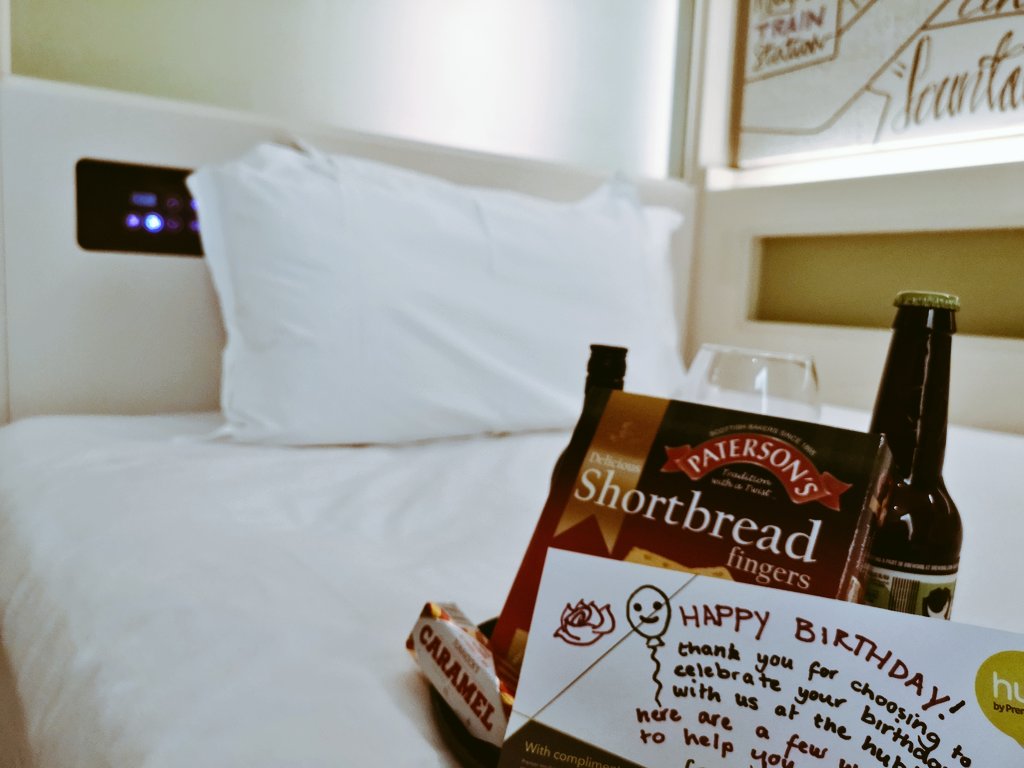 TRAIN
Station
SCOTTISH BAKERS SINCE 1895
PATERSON'S
Tradition
with a Twist
Delicious
Shortbread
fingers
CARAMEL
HAPPY BIRTHDAY!
thank you for choosing to
celebrate your birthday
with us at the hub
here are a few
to help you
hu
by Prem
With complimen